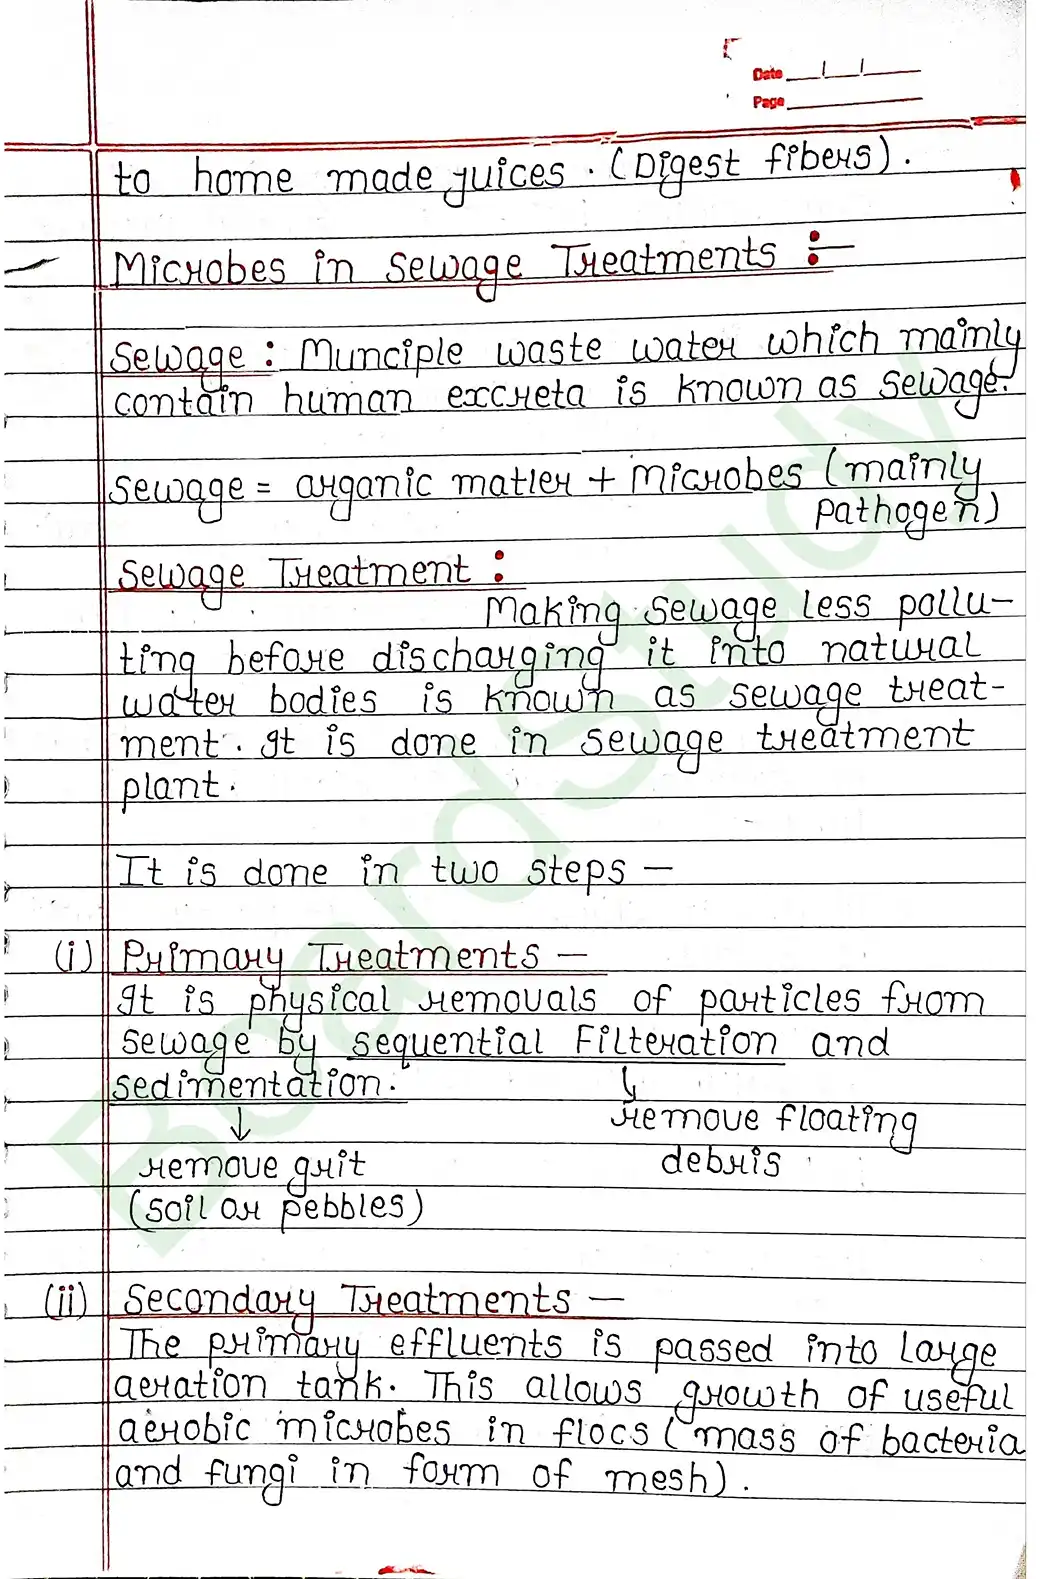 Date
Page
to home made juices. (Digest fibers).
Microbes in Sewage Treatments :-
Sewage : Munciple waste water which mainly
contain human excreta is known as sewage.
Sewage = organic matter + microbes (mainly
pathogen)
Sewage Treatment :
Making sewage less pollu-
ting before discharging it into natural
water bodies is known as sewage treat-
ment. It is done in sewage treatment
plant.
It is done in two steps —
(i) Primary Treatments —
It is physical removals of particles from
sewage by sequential Filteration and
sedimentation.
remove floating
debris
remove grit
(soil or pebbles)
(ii) Secondary Treatments —
The primary effluents is passed into large
aeration tank. This allows growth of useful
aerobic microbes in flocs (mass of bacteria
and fungi in form of mesh).
BoardStudy